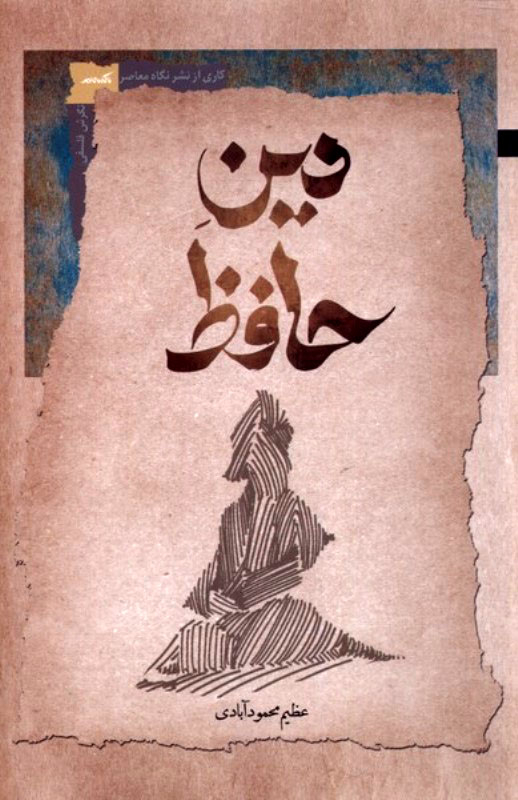 کاری از نشر نگاه معاصر
نگرش فلسفی
دینِ
حافظ
عظیم محمودآبادی